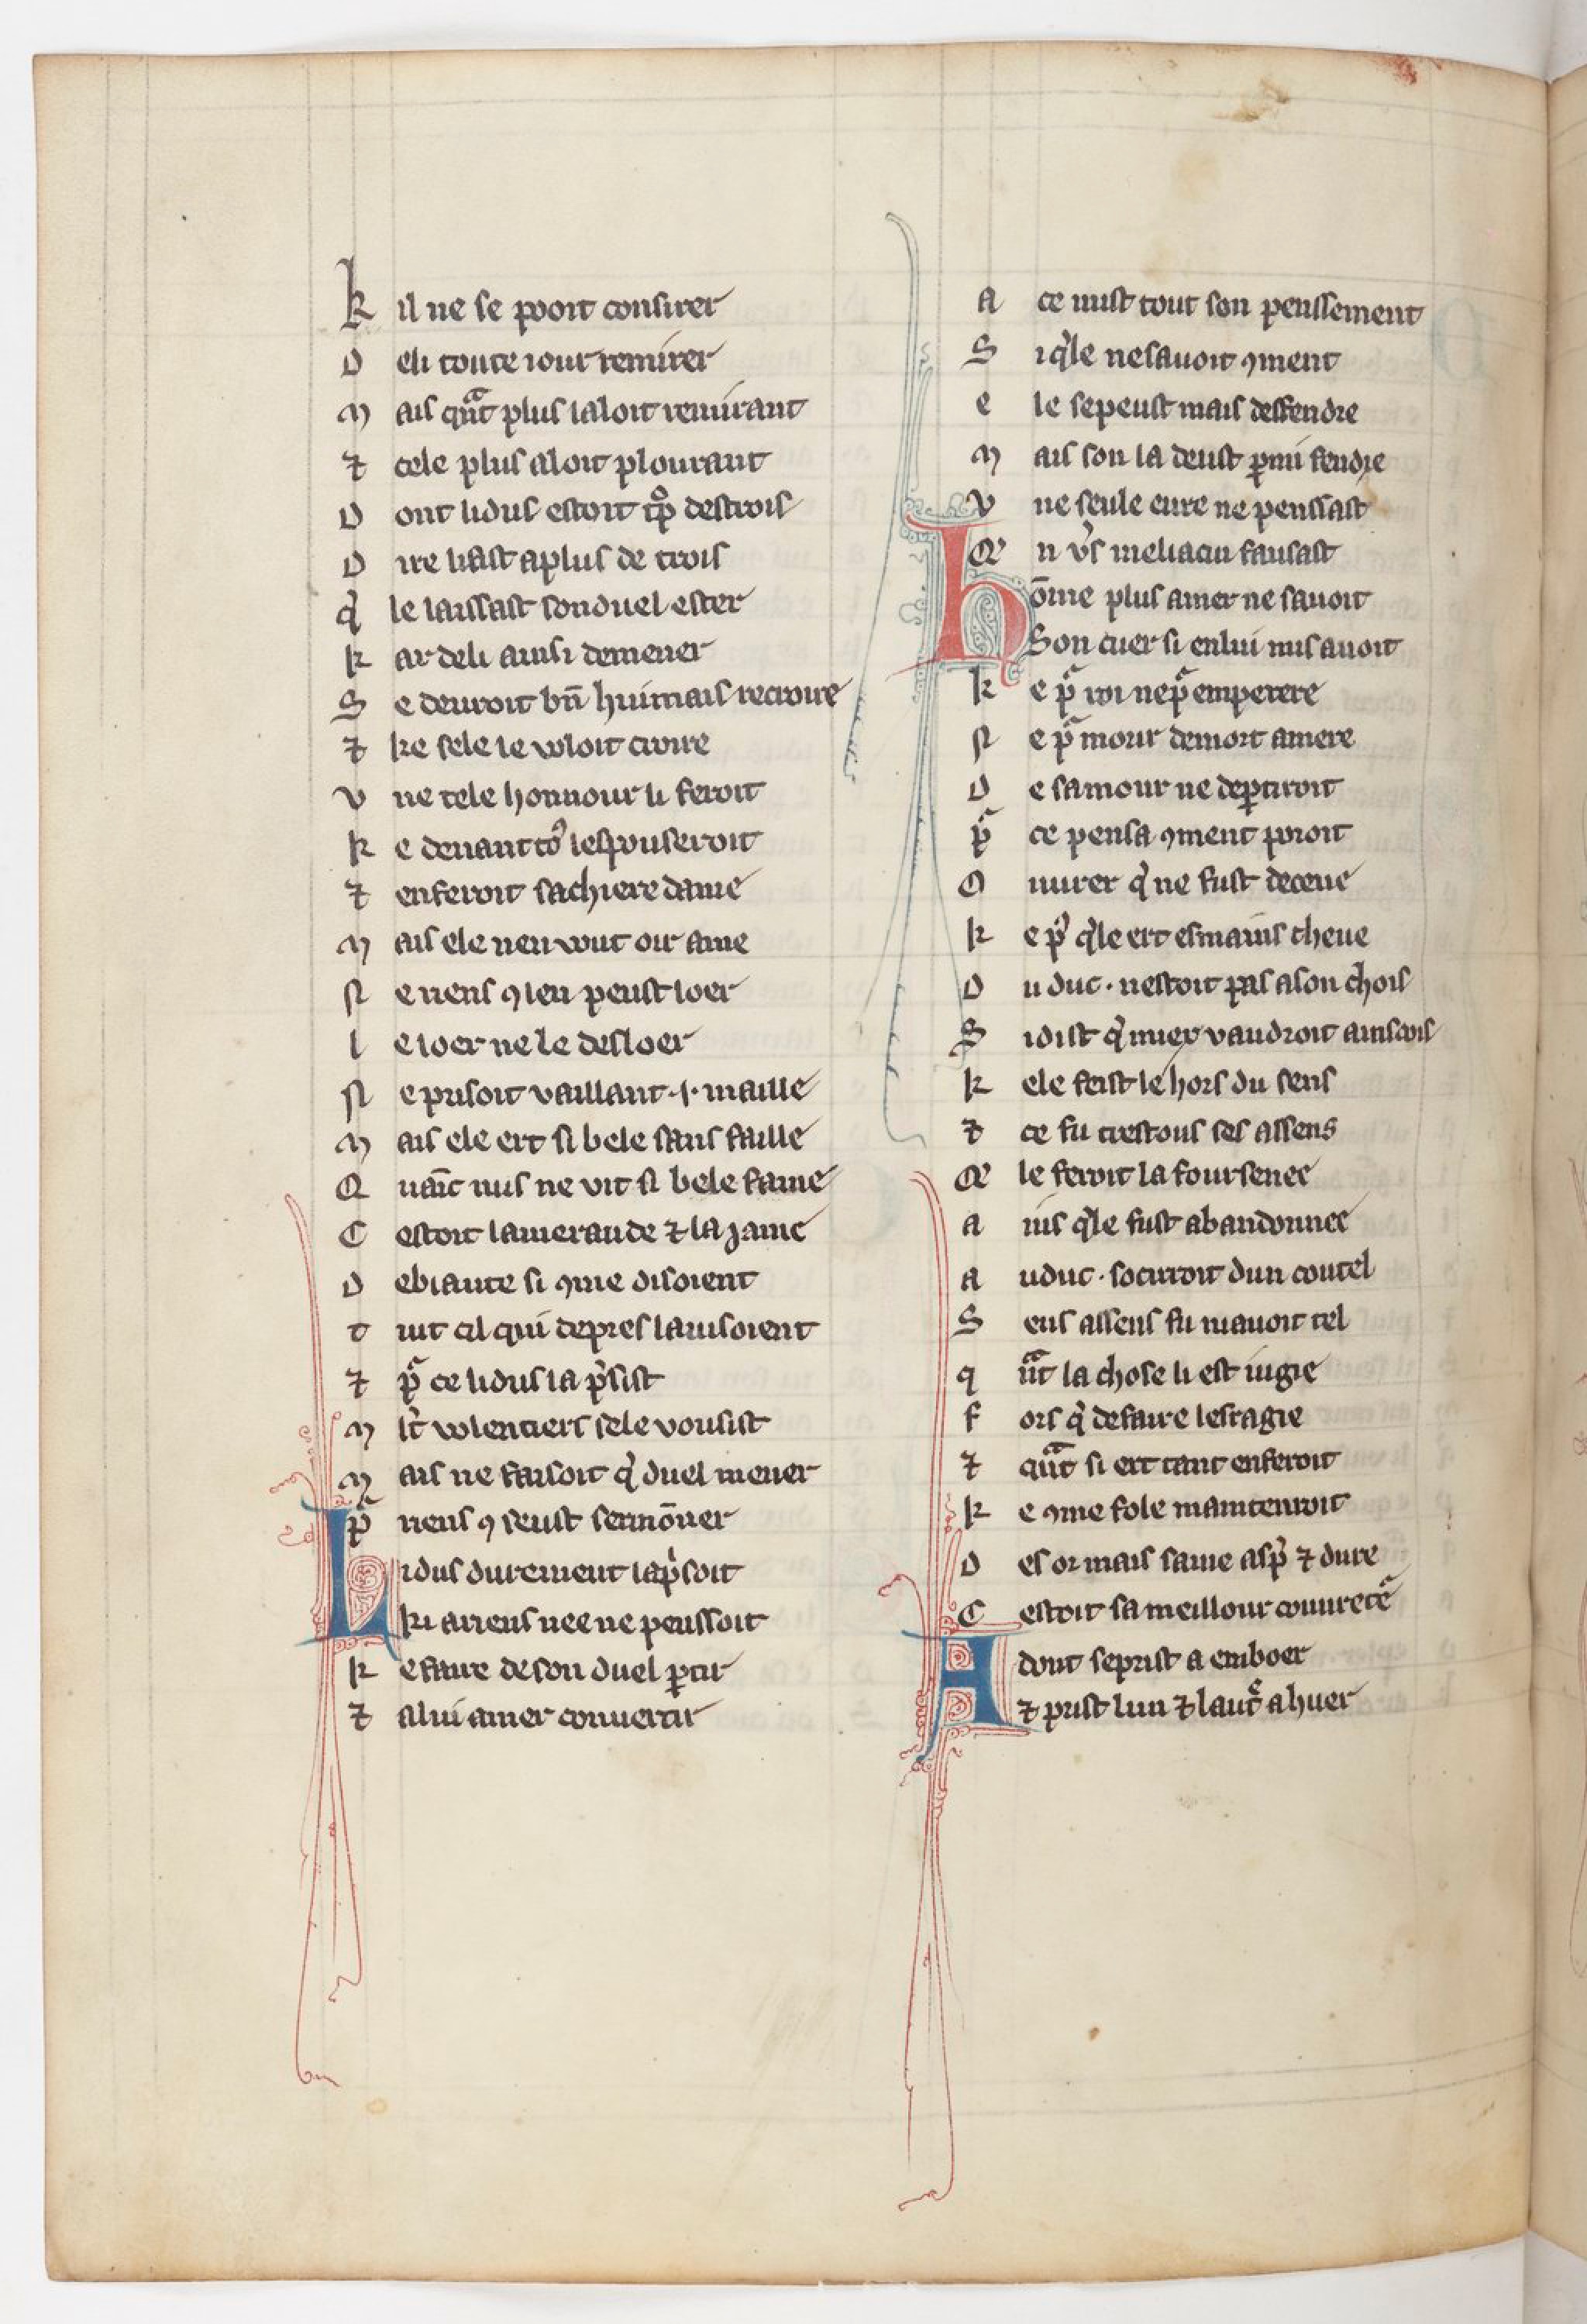 k il ne se pooit consirer
D eli toute iour remirer
M ais qñt plus laloit remirant
⁊ cele plus aloit plourant
D ont lidus estoit tͬp destrois
D ire lifast aplus de trois
q̾ le laissast sonduel ester
k ar deli ainsi demener
S e deuroit bn̄ huimais recroire
⁊ ke sele le voloit croire
v ne tele honnour li feroit
k e deuant to᷒ lespouseroit
⁊ enferoit sachiere dame
M ais ele nen vout oir ame
N e riens ꝯ len peust loer
l e loer ne le desloer
N e prisoit vaillant ·i· maille
M ais ele ert si bele sans faille
Q nāc nus ne vit si bele fame
C estoit lameraude ⁊ la jame
D ebiaute si ꝯme disoient
t uit cil qui depres lauisoient
⁊ p̾ ce lidus la p̾sist
M lt̾ volentiers sele vousist
M ais ne faisoit q̾ duel mener
p̾ riens ꝯ seust sermōner
L idus durement lap̾soit
ki ariens nee ne penssoit
k e faire de son duel ꝑtir
⁊ alui amer conuertir
A ce mist tout son penssement
S iq̾le nesauoit ꝯment
e le sepeust mais deffendre
M ais son la deust ꝑmi fendre
V ne seule eure ne penssast
E n v̾s meliacin fausast
h ōme plus amer ne sauoit
Son cuer si enlui mis auoit
k e p̾ roi nep̾ emperere
N e p̾ mour demort amere
D e samour ne deꝑtiroit
p̾ ce pensa ꝯment poroit
O uurer q̾ ne fust deceue
k e p̾ q̾le ert esmains cheue
D u duc · nestoit pas ason chois
S idist q̾ miex vaudroit ainscois
k ele feist le hors du sens
⁊ ce fu trestous ses assens
E le feroit la foursenee
A ins q̾le fust abandonnee
A uduc · socirroit dun coutel
S ens assens fu niauoit tel
q ñt la chose li est iugie
F ors q̾ defaire lesragie
⁊ qñt si ert tant enferoit
k e ꝯme fole maintenroit
D es or mais same asp̾ ⁊ dure
C estoit sa meillour couuret̾e
A dont seprist a emboer
⁊ prist lun ⁊ laut̾ ahuer